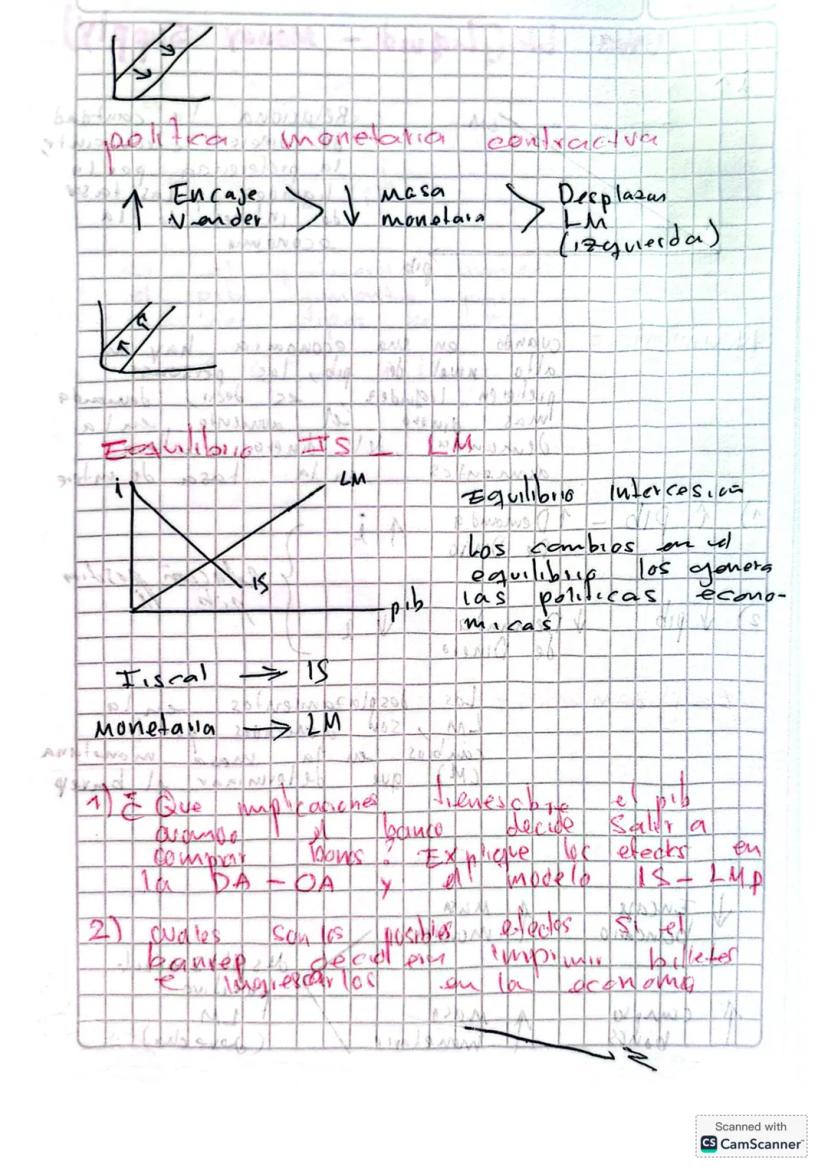 politica monetaria contractva
↑ Encaje > ↓ masa > Desplazan
Vender monetara LM
(izquierda)
Equilibrio IS - LM
i
LM
IS
pib
Equilibrio intercesion
Los cambios en el
equilibrio los genera
las politicas econo-
micas
Fiscal → IS
monetaria → LM
1) ¿ Que implicaciones tiene sobre el pib
cuando el banco decide salir a
comprar bonos? Explique los efectos en
la DA - OA y el modelo IS - LM
2) cuales son los posibles efectos si el
banrep decidiera imprimir billetes
e ingresarlos en la economa
Scanned with
CS CamScanner